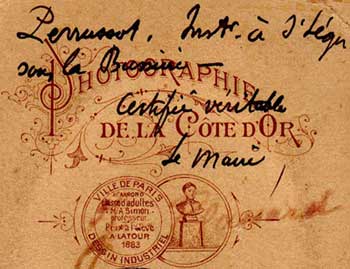 Perrussot. Instr. à St Légr
sous la Bussière
PHOTOGRAPHIE
Certifié véritable
DE LA CÔTE D'OR
Le Maire
VILLE DE PARIS
ARROND
Cours d'adultes
M. A. Simon
professeur
Prix à l'élève
A. LATOUR
1883
DESSIN INDUSTRIEL